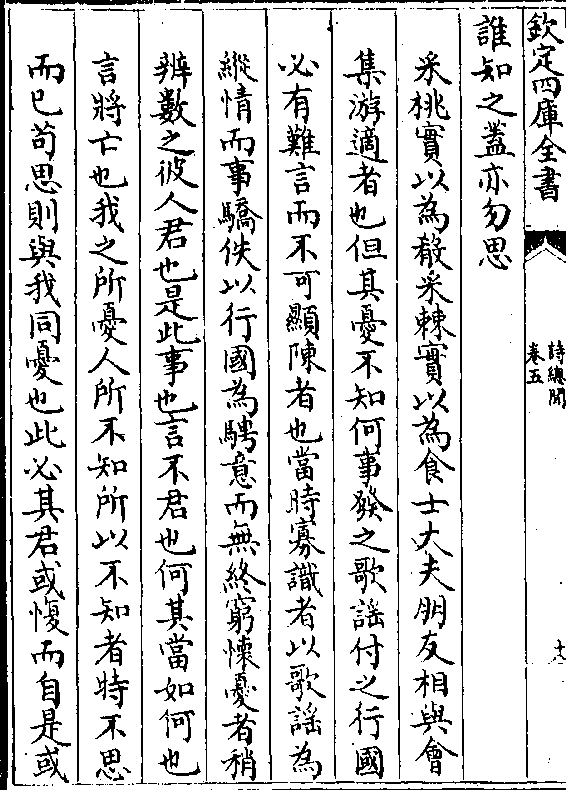 欽定四庫全書
詩總聞
卷五
十八
誰知之蓋亦勿思
采桃實以為殽采棘實以為食士大夫朋友相與會
集游適者也但其憂不知何事發之歌謡付之行國
必有難言而不可顯陳者也當時寡識者以歌謡為
縱情而事驕佚以行國為騁意而無終窮懷憂者稍
辨數之彼人君也是此事也言不君也何其當如何也
言將亡也我之所憂人所不知所以不知者特不思
而已茍思則與我同憂也此必其君或愎而自是或